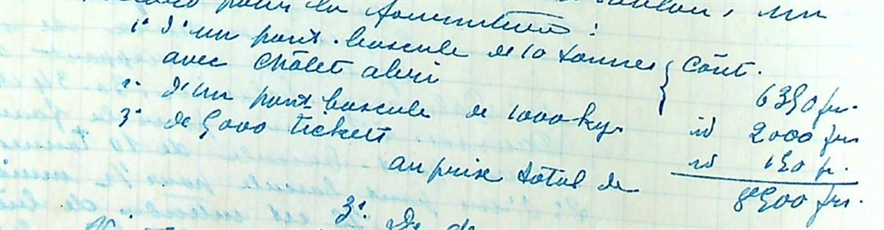 pour la fourniture :
1° d'un pont-bascule de 10 tonnes { Coût.
avec châlet abri 6350 fr.
2° d'un pont bascule de 1000 kgs id 2000 frs
3° de 5000 tickets id 150 fr.
au prix total de 8500 frs.
3° De